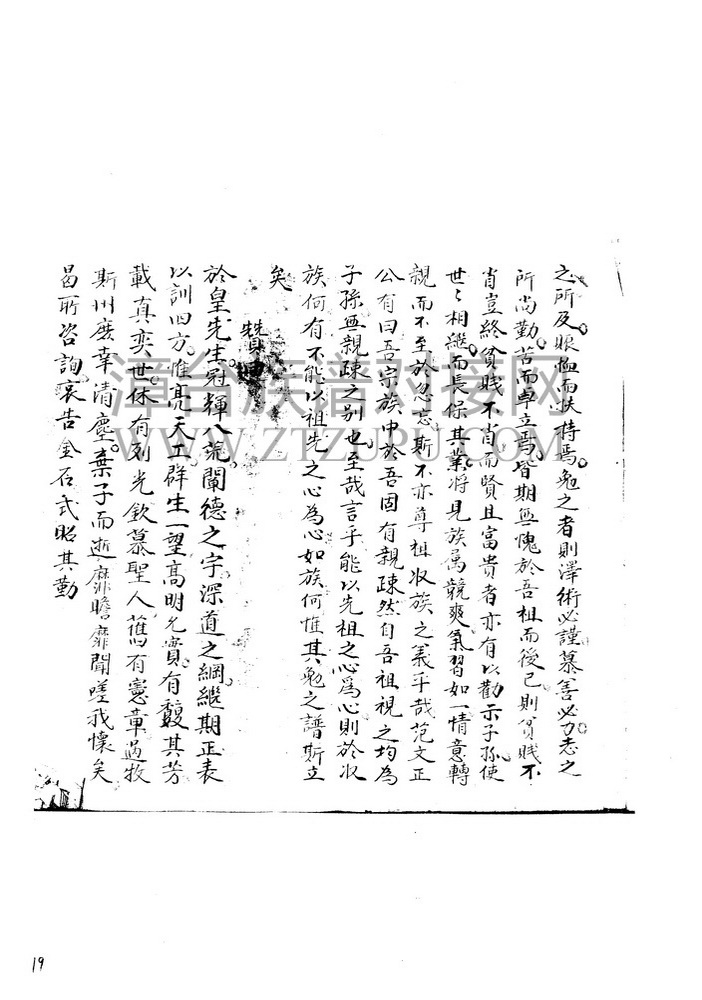 之所及眼恤而扶持焉勉之者則澤術必謹慕善必力志之
所尚勤苦而卓立焉皆期無愧於吾祖而後已則貧賤不
肖豈終貧賤不肖而賢且富貴者亦有以勸示子孫使
世〻相繼而長保其業將見族属競爽氣習如一情意轉
親而不至於忽忘斯不亦尊祖收族之義乎哉范文正
公有曰吾宗族中於吾固有親疎然自吾祖視之均為
子孫無親疎之别也至哉言乎能以先祖之心為心則於收
族何有不能以祖先之心為心如族何惟其勉之譜斯立
矣
贊
於皇先生冠輝八荒闡德之宇深道之綱繼期正表
以訓四方惟亮天工群生一望高明允實有馥其芳
載真奕世休有列光欽慕聖人舊有憲章茲牧
斯州庶幸清塵棄子而逝靡瞻靡聞嗟我懷矣
曷所咨詢哀告金石式昭其勤
漳台族譜对接网
WWW.ZTZUPU.COM
19